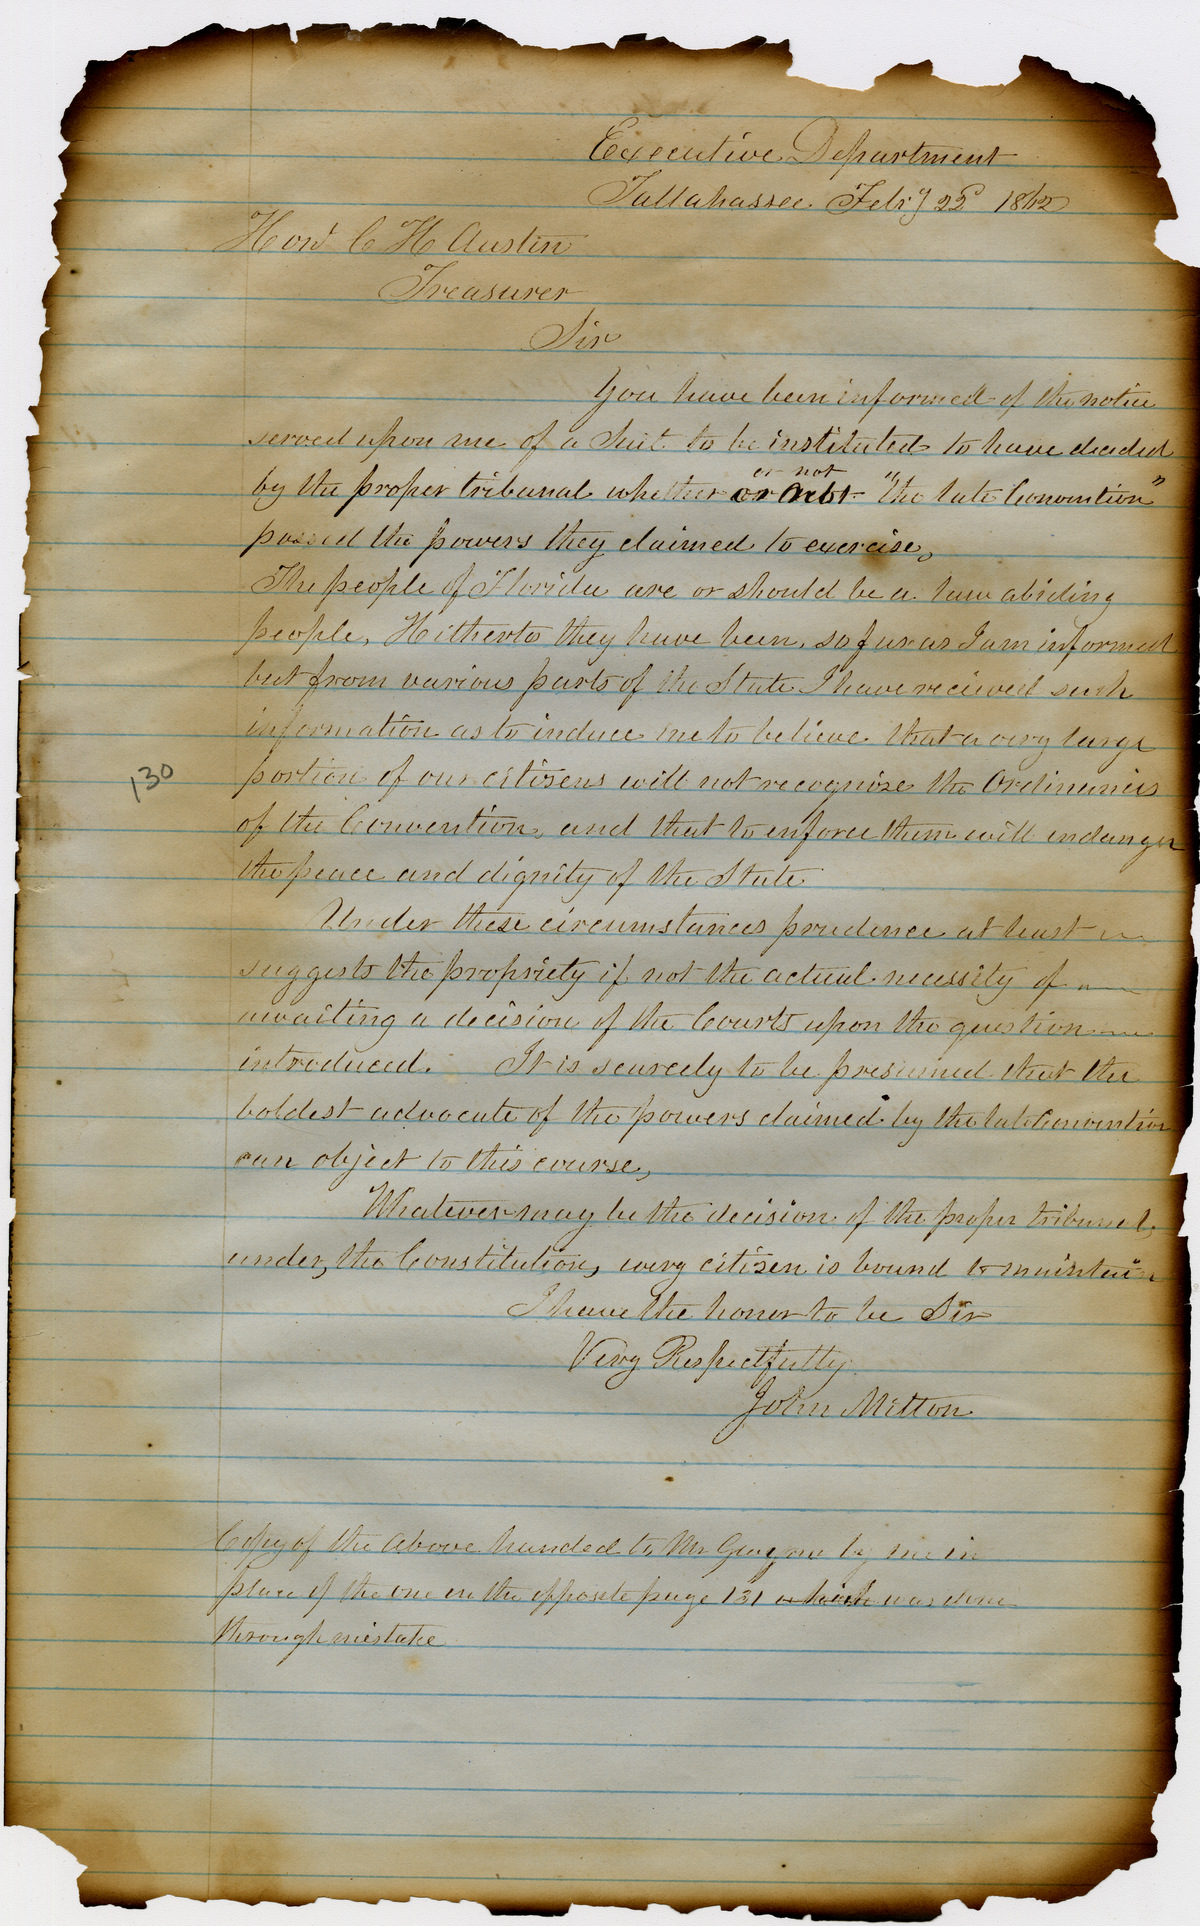 Executive Department
Tallahassee Feby 22d 1862
Hon C H Austin
Treasurer
Sir
You have been informed of the notice
served upon me of a Suit to be instituted to have decided
or not
by the proper tribunal whether or not "the late Convention"
possed the powers they claimed to exercise,
The people of Florida are or should be a law abiding
people, Hitherto they have been, so far as I am informed
but from various parts of the State I have recieved such
information as to induce me to believe that a very large
portion of our citizens will not recognize the Ordinances
130
of the Convention, and that to enforce them will endanger
the peace and dignity of the State
Under these circumstances prudence at least
suggests the propriety if not the actual necessity of
awaiting a decision of the Courts upon the question
introduced. It is scarcely to be presumed that the
boldest advocate of the powers claimed by the late Convention
can object to this course,
Whatever may be the decision of the proper tribunal,
under, the Constitution, every citizen is bound to maintain
I have the honor to be Sir
Very Respectfully
John Milton
Copy of the above handed to Mr by me in
place of the one on the opposite page 131 which was done
through mistake